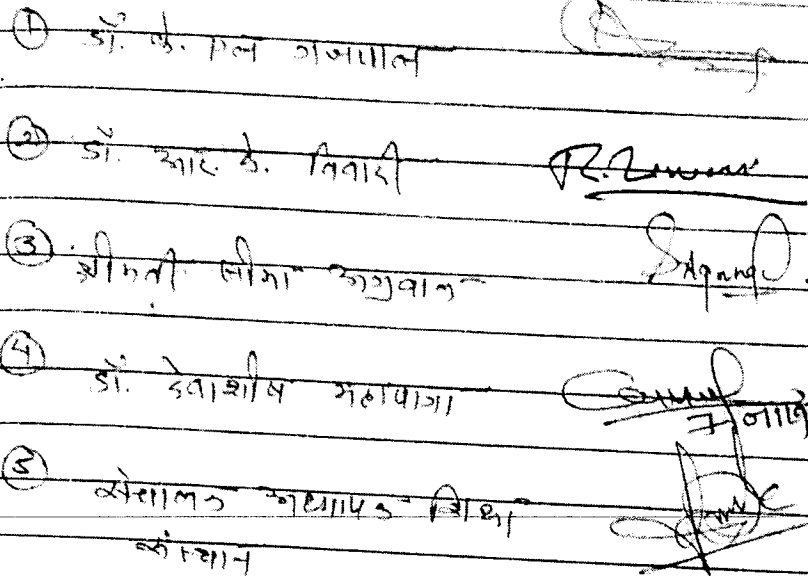 ① डॉ. के. एल गजपाल
② डॉ. आर. के. तिवारी
③ श्रीमती सीमा अग्रवाल
④ डॉ. देवाशीष महापात्रा
⑤ संचालक अध्यापक शिक्षा
संस्थान